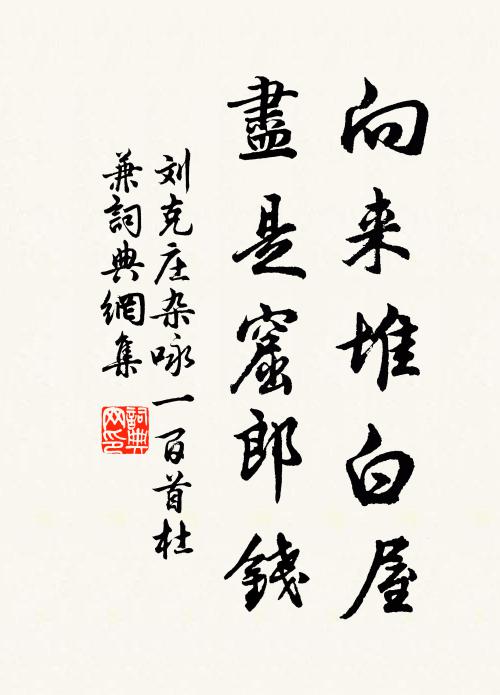 向来堆白屋
盡是窟郎錢
刘克庄杂咏一百首杜
兼詞典網集
詞典网印